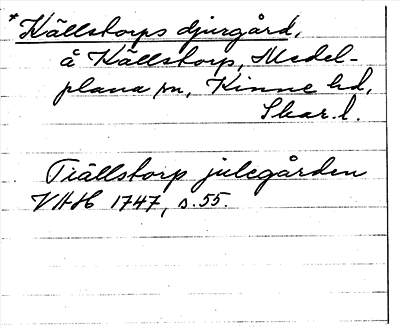 *Källstorps djurgård,
å Källstorp, Medel-
plana sn, Kinne hd,
Skar. l.
Tiällstorp julegården
VAH 1747, s. 55.